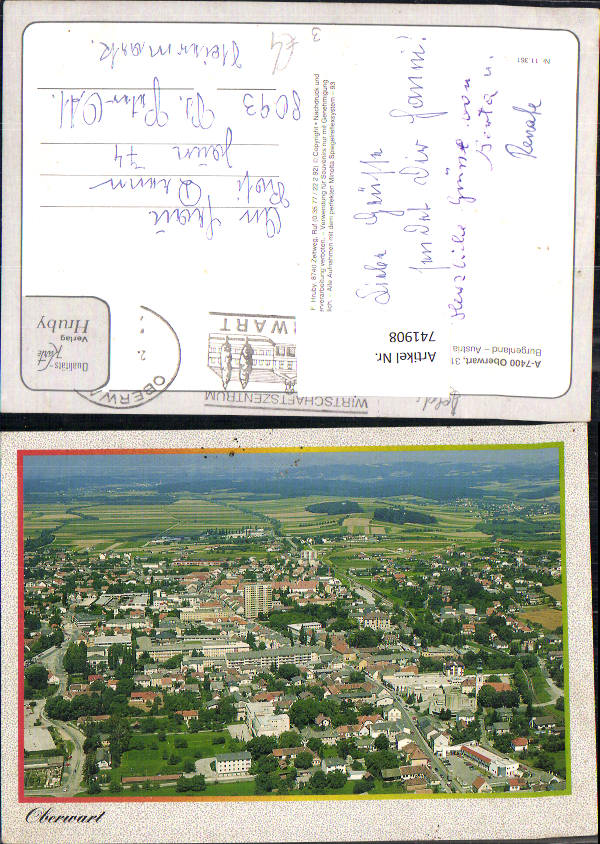 A-7400 Oberwart, 31
Burgenland – Austria
Artikel Nr.
741908
Nr. 11 361
Liebe Grüße
sendet Dir Hanni!
Herzliche Grüsse von
u.
Renate
F. Hruby, 8740 Zeltweg, Ruf (0 35 77 / 22 2 92) © Copyright • Nachdruck und
verarbeitung verboten. – Verwendung für Souvenirs nur mit Genehmigung
lich. – Alle Aufnahmen mit dem perfekten Minolta Spiegelreflexsystem – 93
Qualitäts-
Karte
Verlag
Hruby
WIRTSCHAFTSZENTRUM
OBERWA
WART
2.
An Frau
74
8093
Steiermark.
3
Oberwart